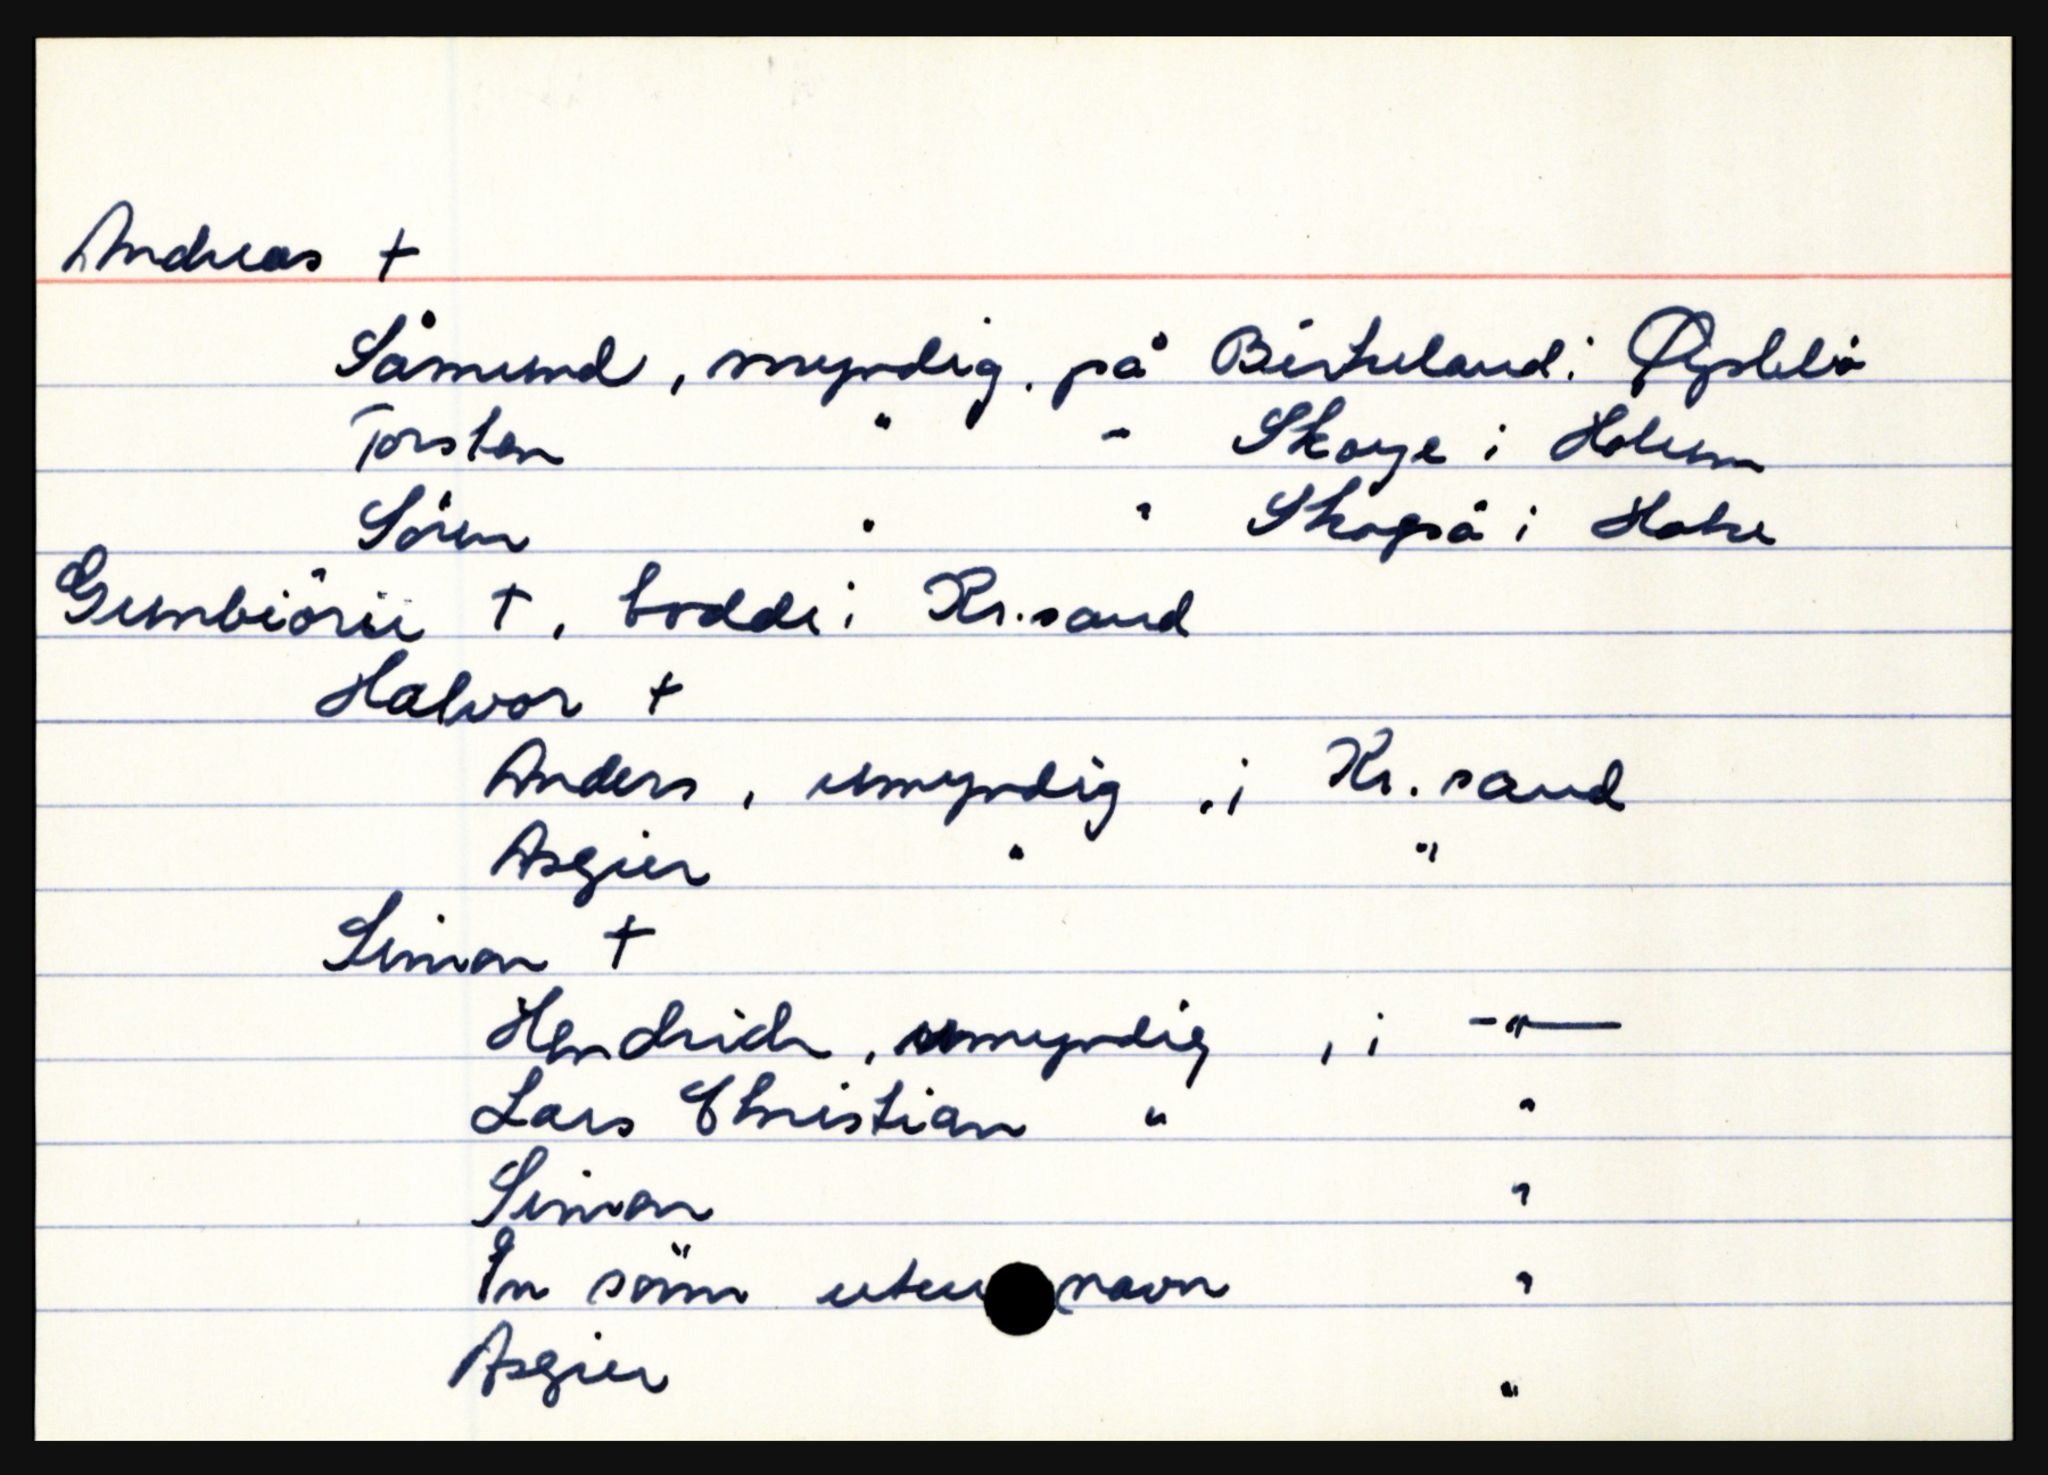 Andreas †
Såmund, myndig, på Birkeland i Øyslebö
Torsten " - Skoye i Holum
Sören " " Skogså i Halse
Gunbiörn †, bodde i Kr.sand
Halvor †
Anders, umyndig, i Kr.sand
Asgier " "
Simon †
Hendrich, umyndig, i -"-
Lars Christian " "
Simon "
En sönn uten navn "
Asgier "